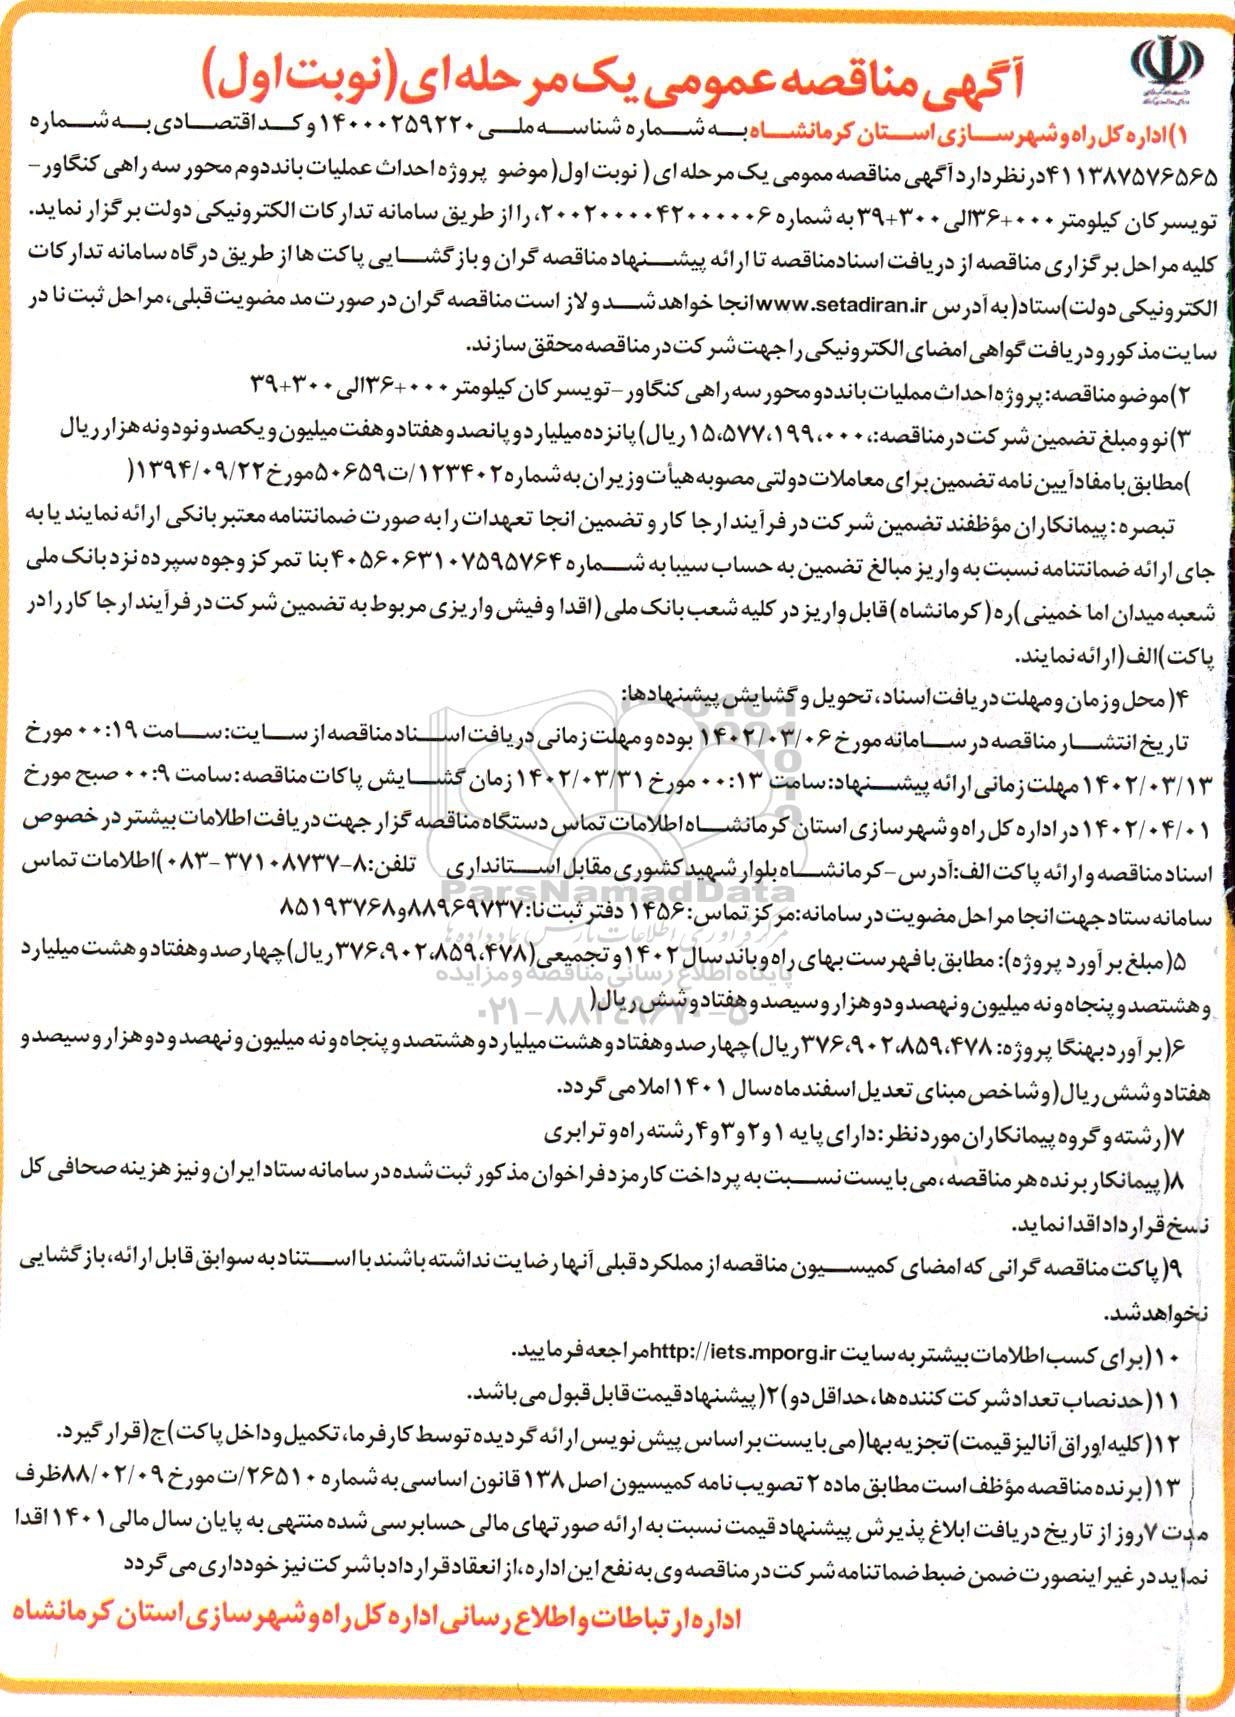 آگهی مناقصه عمومی یک مرحله ای (نوبت اول)
۱)اداره کل راه و شهرسازی استان کرمانشاه به شماره شناسه ملی ۱۴۰۰۰۲۵۹۲۲۰ و کد اقتصادی به شماره
۴۱۱۳۸۷۵۷۶۵۶۵در نظر دارد آگهی مناقصه ممومی یک مرحله ای ( نوبت اول( موضو پروژه احداث عملیات باند دوم محور سه راهی کنگاور-
تویسرکان کیلومتر ۰۰۰+۳۶الی ۳۰۰+۳۹ به شماره ۲۰۰۲۰۰۰۰۴۲۰۰۰۰۰۶، را از طریق سامانه تدارکات الکترونیکی دولت برگزار نماید.
کلیه مراحل برگزاری مناقصه از دریافت اسنادمناقصه تا ارائه پیشنهاد مناقصه گران و بازگشایی پاکت ها از طریق درگاه سامانه تدارکات
الکترونیکی دولت)ستاد(به آدرس www.setadiran.ir انجا خواهد شد و لاز است مناقصه گران در صورت مد مضویت قبلی، مراحل ثبت نا در
سایت مذکور و دریافت گواهی امضای الکترونیکی را جهت شرکت در مناقصه محقق سازند.
۲)موضو مناقصه: پروژه احداث مملیات باند دو محور سه راهی کنگاور -تویسرکان کیلومتر ۰۰۰+۳۶الی ۳۰۰+۳۹
۳)نو و مبلغ تضمین شرکت در مناقصه:،۱۵،۵۷۷،۱۹۹،۰۰۰ ریال) پانزده میلیارد و پانصد و هفتاد و هفت میلیون و یکصد و نود و نه هزار ریال
)مطابق با مفاد آیین نامه تضمین برای معاملات دولتی مصوبه هیأت وزیران به شماره ۱۲۳۴۰۲/ت۵۰۶۵۹مورخ ۱۳۹۴/۰۹/۲۲(
تبصره : پیمانکاران مؤظفند تضمین شرکت در فرآیند ارجا کار و تضمین انجا تعهدات را به صورت ضمانتنامه معتبر بانکی ارائه نمایند یا به
جای ارائه ضمانتنامه نسبت به واریز مبالغ تضمین به حساب سیبا به شماره ۴۰۵۶۰۶۳۱۰۷۵۹۵۷۶۴بنا تمرکز وجوه سپرده نزد بانک ملی
شعبه میدان اما خمینی )ره( کرمانشاه )قابل واریز در کلیه شعب بانک ملی ( اقدا و فیش واریزی مربوط به تضمین شرکت در فرآیند ارجا کار را در
پاکت)الف( ارائه نمایند.
۴( محل و زمان و مهلت دریافت اسناد، تحویل و گشایش پیشنهادها:
تاریخ انتشار مناقصه در سامانه مورخ ۱۴۰۲/۰۳/۰۶ بوده و مهلت زمانی دریافت اسناد مناقصه از سایت: سامت ۰۰:۱۹ مورخ
۱۴۰۲/۰۳/۱۳ مهلت زمانی ارائه پیشنهاد: سامت ۰۰:۱۳ مورخ ۱۴۰۲/۰۳/۳۱ زمان گشایش پاکات مناقصه : سامت ۰۰:۹ صبح مورخ
۱۴۰۲/۰۴/۰۱ در اداره کل راه و شهرسازی استان کرمانشاه اطلامات تماس دستگاه مناقصه گزار جهت دریافت اطلامات بیشتر در خصوص
اسناد مناقصه و ارائه پاکت الف: آدرس -کرمانشاه بلوار شهید کشوری مقابل استانداری تلفن: ۸-۳۷۱۰۸۷۳۷ -۰۸۳)اطلامات تماس
سامانه ستاد جهت انجا مراحل مضویت در سامانه: مرکز تماس: ۱۴۵۶ دفتر ثبت نا: ۸۸۹۶۹۷۳۷و ۸۵۱۹۳۷۶۸
۵( مبلغ برآورد پروژه): مطابق با فهرست بهای راه و باند سال ۱۴۰۲و تجمیعی(۳۷۶،۹۰۲،۸۵۹،۴۷۸ ریال)چهارصد و هفتاد و هشت میلیارد
و هشتصد و پنجاه و نه میلیون و نهصد و دو هزار و سیصد و هفتاد و شش ریال(
۶(برآورد بهنگا پروژه: ۳۷۶،۹۰۲،۸۵۹،۴۷۸ریال)چهارصد و هفتاد و هشت میلیارد و هشتصد و پنجاه و نه میلیون و نهصد و دو هزار و سیصد و
هفتاد و شش ریال( و شاخص مبنای تعدیل اسفند ماه سال ۱۴۰۱ املا می گردد.
۷( رشته و گروه پیمانکاران مورد نظر: دارای پایه ۱ و ۲ و ۳ و ۴ رشته راه و ترابری
۸( پیمانکار برنده هر مناقصه، می بایست نسبت به پرداخت کارمزد فراخوان مذکور ثبت شده در سامانه ستاد ایران و نیز هزینه صحافی کل
نسخ قرارداد اقدا نماید.
۹( پاکت مناقصه گرانی که امضای کمیسیون مناقصه از مملکرد قبلی آنها رضایت نداشته باشند با استناد به سوابق قابل ارائه، بازگشایی
نخواهد شد.
۱۰(برای کسب اطلامات بیشتر به سایت http://iets.mporg.irمراجعه فرمایید.
۱۱(حد نصاب تعداد شرکت کننده ها، حداقل دو)۲( پیشنهاد قیمت قابل قبول می باشد.
۱۲( کلیه اوراق آنالیز قیمت) تجزیه بها( می بایست بر اساس پیش نویس ارائه گردیده توسط کارفرما، تکمیل و داخل پاکت)ج( قرار گیرد.
۱۳(برنده مناقصه مؤظف است مطابق ماده ۲ تصویب نامه کمیسیون اصل ۱۳۸ قانون اساسی به شماره ۲۶۵۱۰/ت مورخ ۸۸/۰۲/۰۹ظرف
مدت ۷روز از تاریخ دریافت ابلاغ پذیرش پیشنهاد قیمت نسبت به ارائه صورتهای مالی حسابرسی شده منتهی به پایان سال مالی ۱۴۰۱ اقدا
نماید در غیر اینصورت ضمن ضبط ضماتنامه شرکت در مناقصه وی به نفع این اداره، از انعقاد قرارداد با شرکت نیز خودداری می گردد
اداره ارتباطات و اطلاع رسانی اداره کل راه و شهرسازی استان کرمانشاه
ParsNamadData
مرکز فرآوری اطلاعات پارس نماد داده ها
پایگاه اطلاع رسانی مناقصه و مزایده
۰۲۱-۸۸۳۴۹۶۷۰-۵